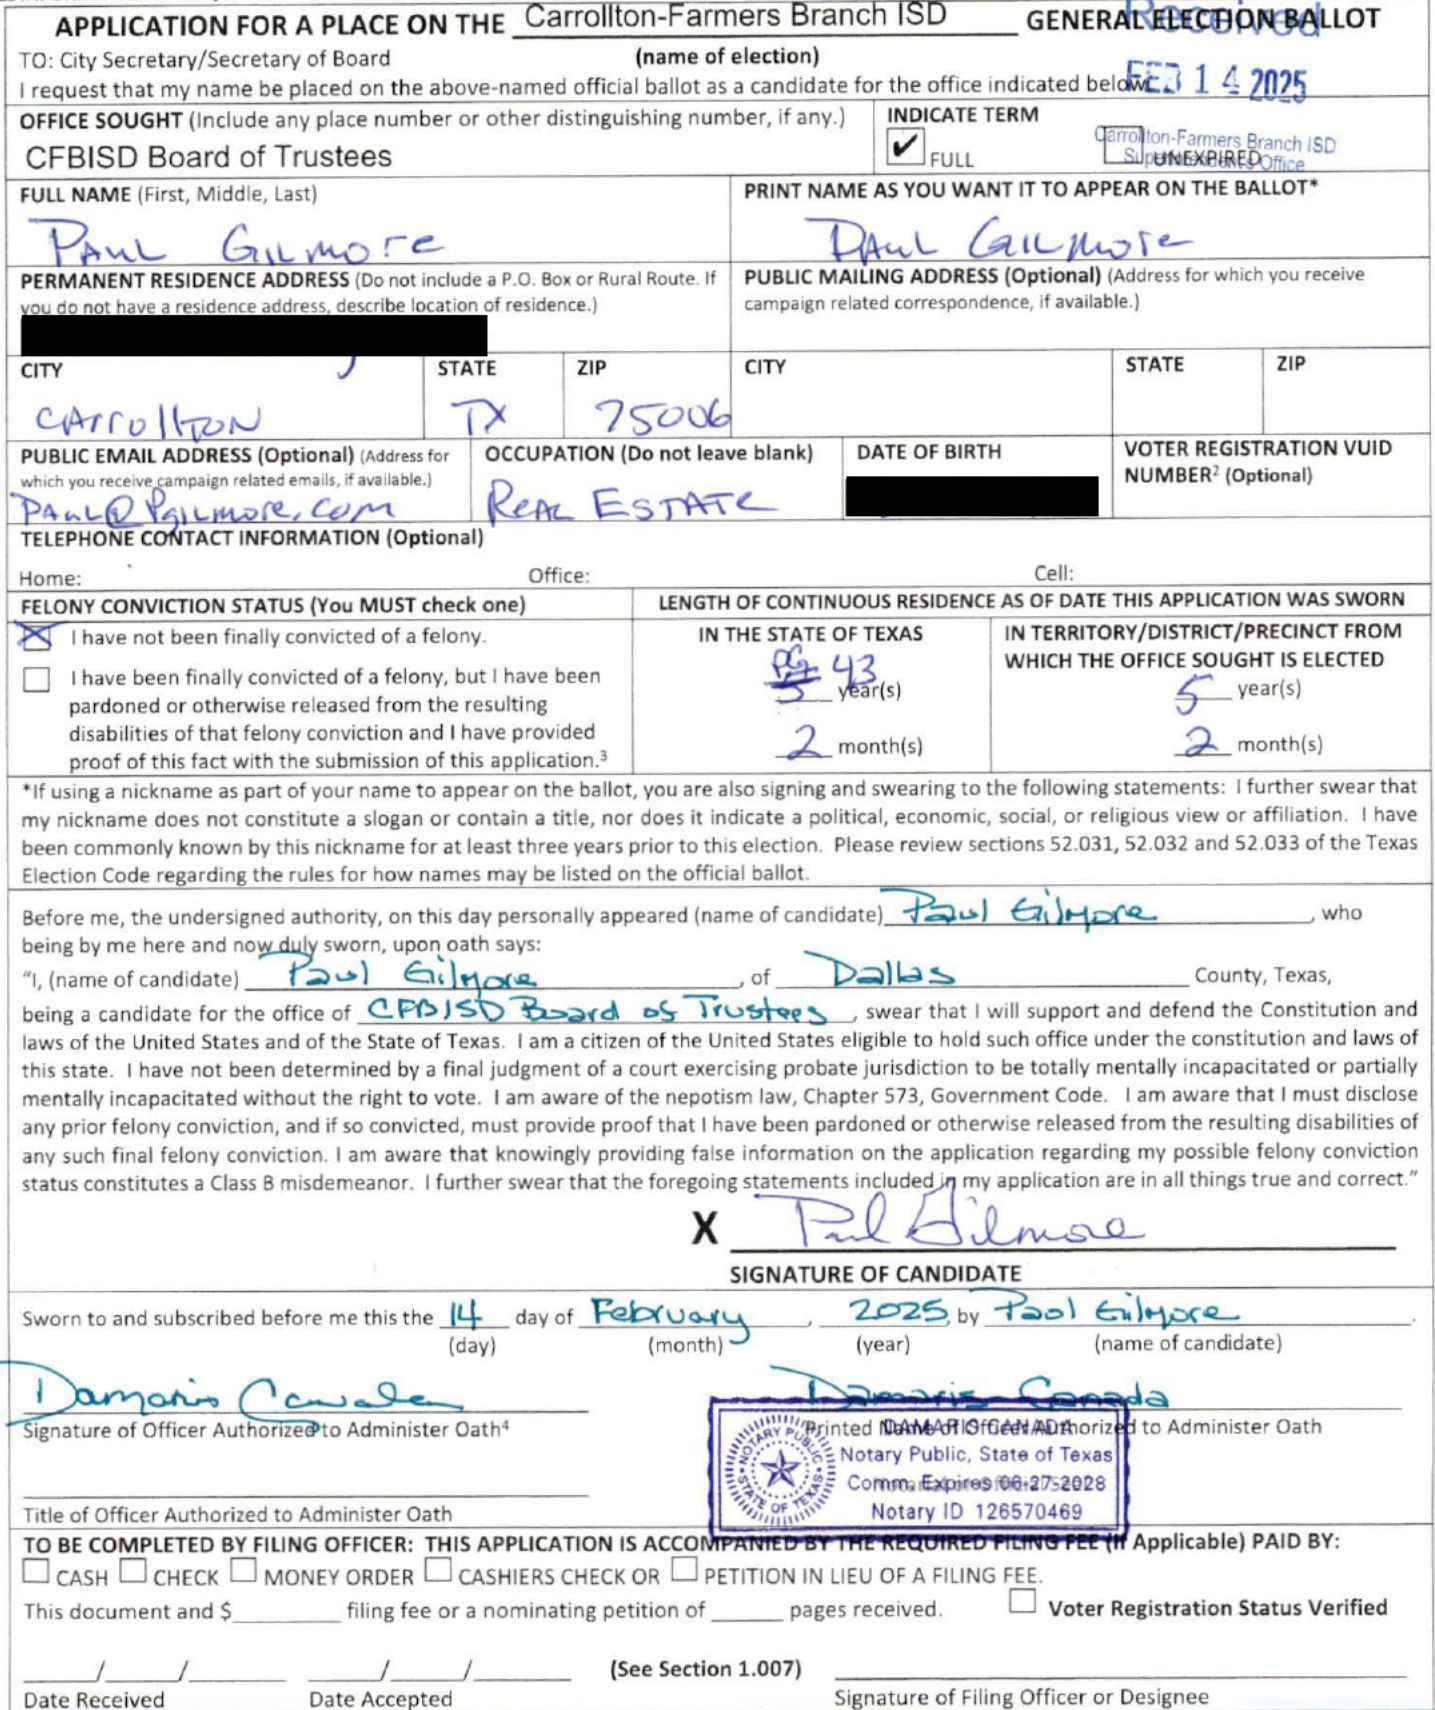 APPLICATION FOR A PLACE ON THE Carrollton-Farmers Branch ISD GENERAL ELECTION BALLOT
Received
TO: City Secretary/Secretary of Board (name of election)
I request that my name be placed on the above-named official ballot as a candidate for the office indicated below.
FEB 14 2025
OFFICE SOUGHT (Include any place number or other distinguishing number, if any.)
CFBISD Board of Trustees
INDICATE TERM
✔ FULL
UNEXPIRED
Carrollton-Farmers Branch ISD
Superintendent's Office
FULL NAME (First, Middle, Last)
PAUL GILMORE
PRINT NAME AS YOU WANT IT TO APPEAR ON THE BALLOT*
PAUL GILMORE
PERMANENT RESIDENCE ADDRESS (Do not include a P.O. Box or Rural Route. If
you do not have a residence address, describe location of residence.)
PUBLIC MAILING ADDRESS (Optional) (Address for which you receive
campaign related correspondence, if available.)
CITY STATE ZIP CITY STATE ZIP
CArrollTON TX 75006
PUBLIC EMAIL ADDRESS (Optional) (Address for
which you receive campaign related emails, if available.)
PAUL@PGILMORE.COM
OCCUPATION (Do not leave blank)
REAL ESTATE
DATE OF BIRTH
VOTER REGISTRATION VUID
NUMBER² (Optional)
TELEPHONE CONTACT INFORMATION (Optional)
Home: Office: Cell:
FELONY CONVICTION STATUS (You MUST check one)
I have not been finally convicted of a felony.
I have been finally convicted of a felony, but I have been
pardoned or otherwise released from the resulting
disabilities of that felony conviction and I have provided
proof of this fact with the submission of this application.³
LENGTH OF CONTINUOUS RESIDENCE AS OF DATE THIS APPLICATION WAS SWORN
IN THE STATE OF TEXAS
PG 43
5 year(s)
2 month(s)
IN TERRITORY/DISTRICT/PRECINCT FROM
WHICH THE OFFICE SOUGHT IS ELECTED
5 year(s)
2 month(s)
*If using a nickname as part of your name to appear on the ballot, you are also signing and swearing to the following statements: I further swear that
my nickname does not constitute a slogan or contain a title, nor does it indicate a political, economic, social, or religious view or affiliation. I have
been commonly known by this nickname for at least three years prior to this election. Please review sections 52.031, 52.032 and 52.033 of the Texas
Election Code regarding the rules for how names may be listed on the official ballot.
Before me, the undersigned authority, on this day personally appeared (name of candidate) Paul Gilmore, who
being by me here and now duly sworn, upon oath says:
"I, (name of candidate) Paul Gilmore, of Dallas County, Texas,
being a candidate for the office of CFBISD Board of Trustees, swear that I will support and defend the Constitution and
laws of the United States and of the State of Texas. I am a citizen of the United States eligible to hold such office under the constitution and laws of
this state. I have not been determined by a final judgment of a court exercising probate jurisdiction to be totally mentally incapacitated or partially
mentally incapacitated without the right to vote. I am aware of the nepotism law, Chapter 573, Government Code. I am aware that I must disclose
any prior felony conviction, and if so convicted, must provide proof that I have been pardoned or otherwise released from the resulting disabilities of
any such final felony conviction. I am aware that knowingly providing false information on the application regarding my possible felony conviction
status constitutes a Class B misdemeanor. I further swear that the foregoing statements included in my application are in all things true and correct."
X Paul Gilmore
SIGNATURE OF CANDIDATE
Sworn to and subscribed before me this the 14 day of February, 2025, by Paul Gilmore.
(day) (month) (year) (name of candidate)
Damaris Canada Damaris Canada
Signature of Officer Authorized to Administer Oath⁴ Printed Name of Officer Authorized to Administer Oath
NOTARY PUBLIC
STATE OF TEXAS
DAMARIS CANADA
Notary Public, State of Texas
Comm. Expires 06-27-2028
Notary ID 126570469
Title of Officer Authorized to Administer Oath
TO BE COMPLETED BY FILING OFFICER: THIS APPLICATION IS ACCOMPANIED BY THE REQUIRED FILING FEE (If Applicable) PAID BY:
CASH CHECK MONEY ORDER CASHIERS CHECK OR PETITION IN LIEU OF A FILING FEE.
This document and $ filing fee or a nominating petition of pages received. Voter Registration Status Verified
/ / / / (See Section 1.007)
Date Received Date Accepted Signature of Filing Officer or Designee